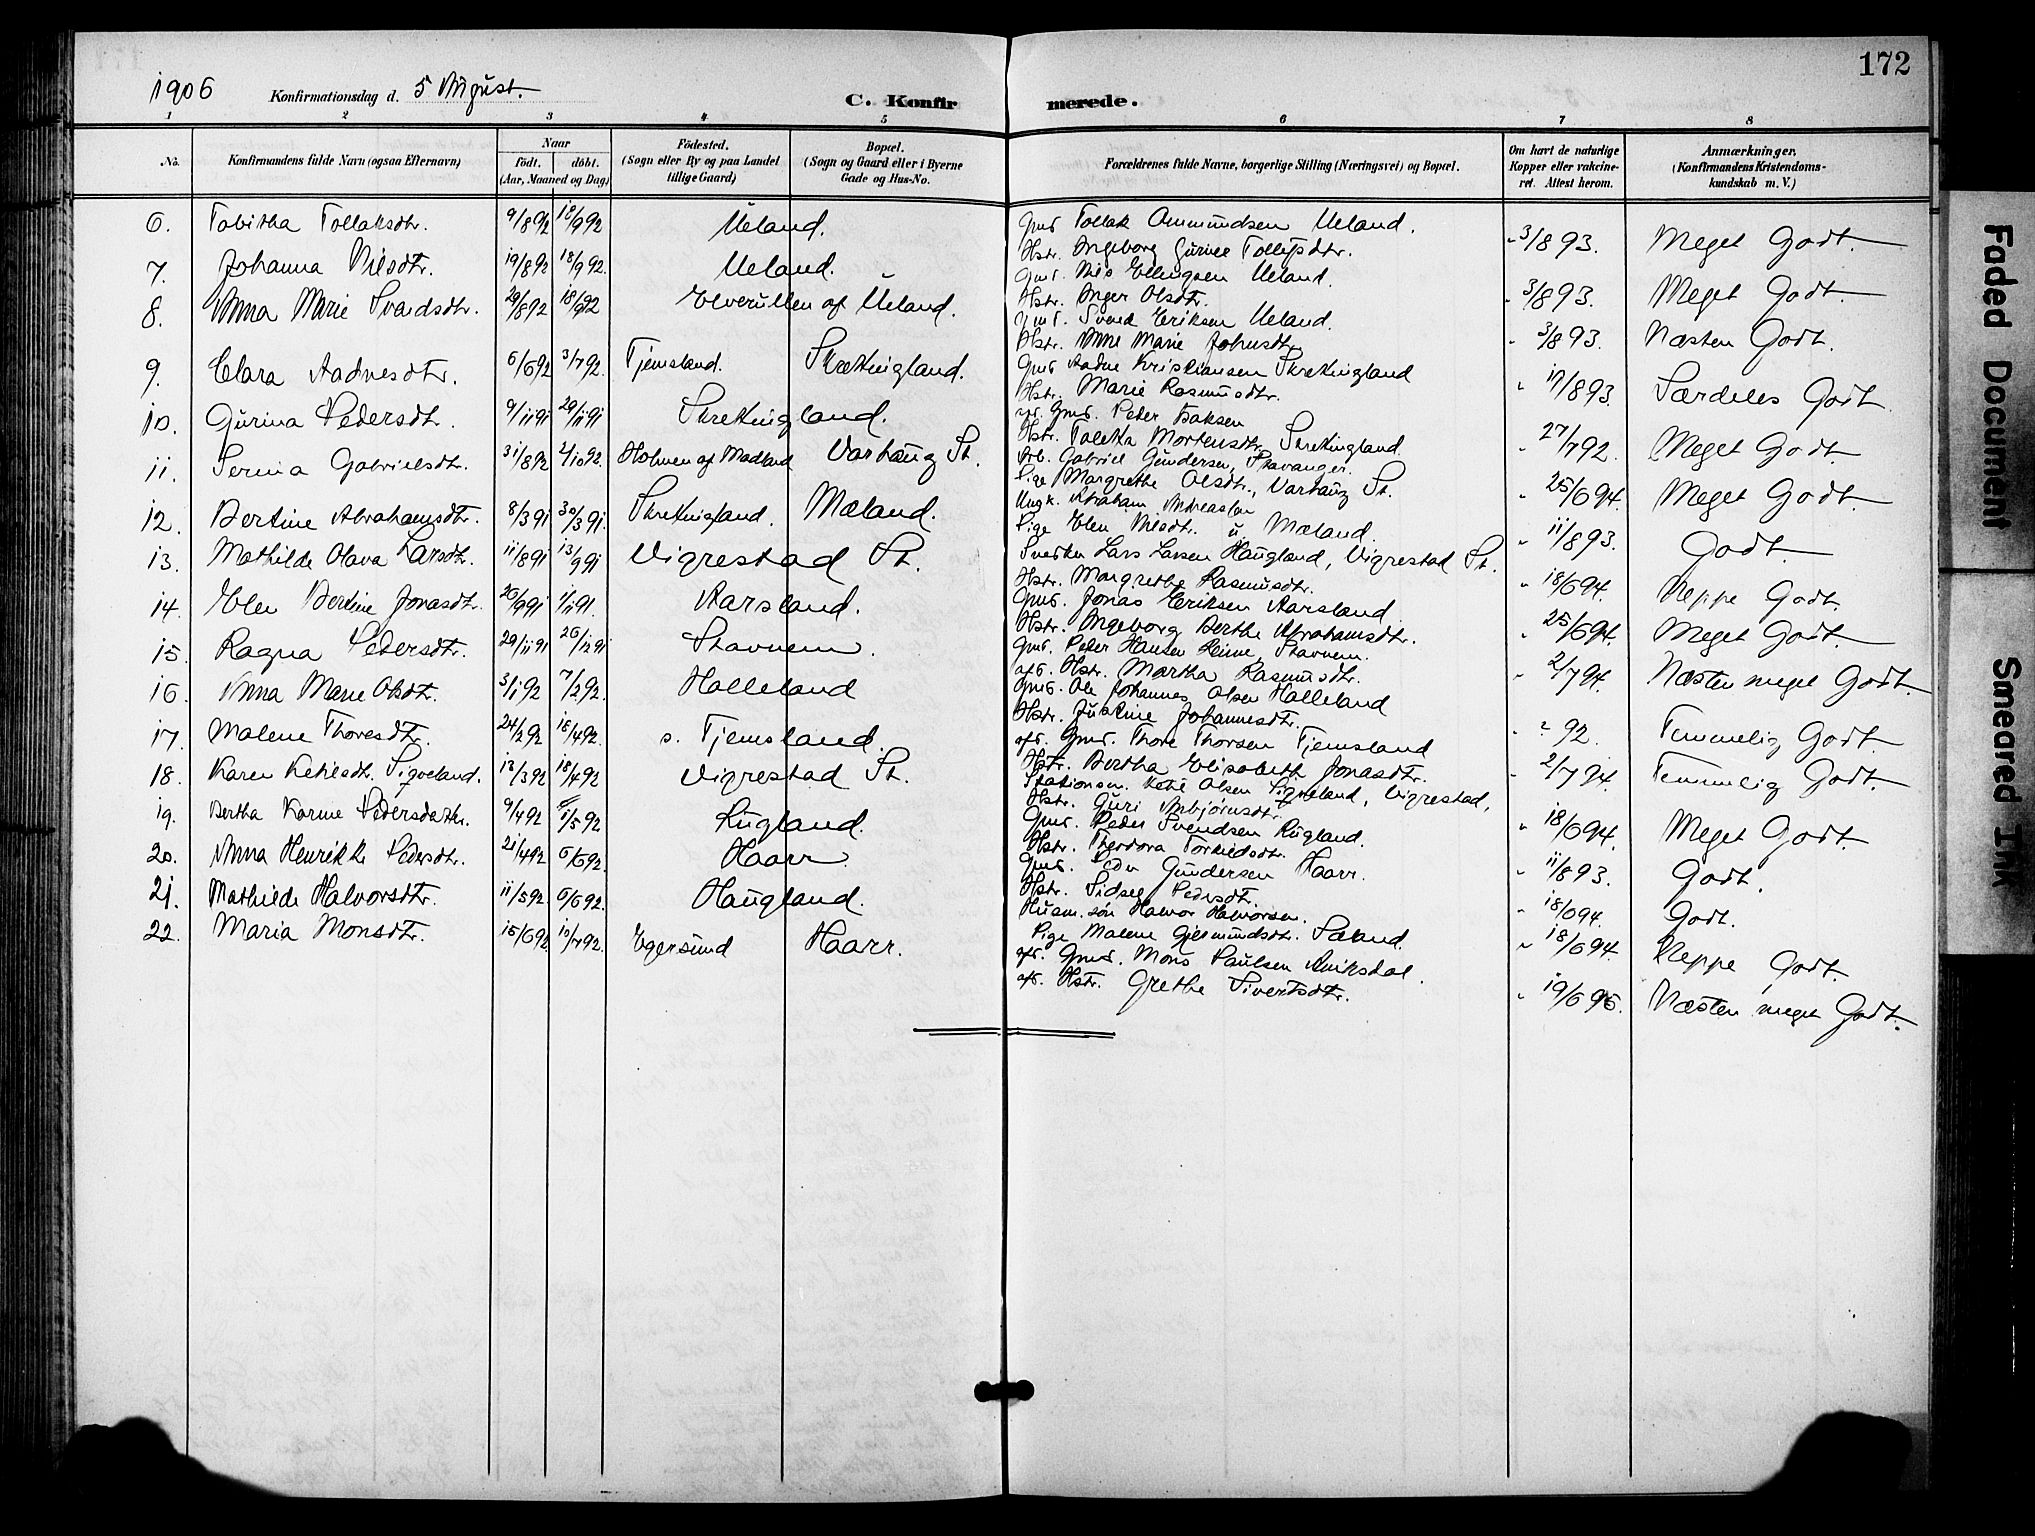 172
1906 Konfirmationsdag d. 5 August.
C. Konfirmerede.
1 2 3 4 5 6 7 8
No.
Konfirmandens fulde Navn (ogsaa Efternavn)
Naar
födt. döbt.
(Aar, Maaned og Dag)
Födested.
(Sogn eller By og paa Landet
tillige Gaard)
Bopæl.
(Sogn og Gaard eller i Byerne
Gade og Hus-No.
Forældrenes fulde Navne, borgerlige Stilling (Næringsvei) og Bopæl.
Om havt de naturlige
Kopper eller vakcine-
ret. Attest herom.
Anmærkninger.
(Konfirmandens Kristendoms-
kundskab m. V.)
6. Tobitha Tollaksdtr. 9/8 92 18/9 92 Ueland. Gmd Tollak Ommundsen Ueland.
Hstr. Ingeborg Gurine Tollefsdtr. " 3/8 93. Meget Godt.
7. Johanna Nilsdtr. 19/8 92 18/9 92. Ueland. Gmd. Nils Ellingsen Ueland.
Hstr. Inger Olsdtr. " 3/8 93. Meget Godt.
8. Anna Marie Svendsdtr. 29/8 92 18/9 92 af Ueland. Gmd. Svend Eriksen Ueland.
Hstr. Anne Marie Johnsdtr. " 3/8 93. Næsten Godt.
9. Clara Aadnesdtr. 6/6 92 3/7 92. Tjemsland. Skretingland. Gmd Aadne Kristiansen Skretingland
Hstr. Marie Rasmusdtr. " 17/8 93. Særdeles Godt.
10. Gurina Pedersdtr. 9/11 91 29/11 91 Skretingland. Gmd. Peder Isaksen
Hstr. Taletta Mortensdtr. Skretingland. " 27/7 92. Meget Godt.
11. Serina Gabrielsdtr. 31/8 92 2/10 92. Holmen af Madland Varhaug St. Arb. Gabriel Gundersen, Stavanger.
Pige Margrethe Olsdtr., Varhaug St. " 25/6 94. Meget Godt.
12. Bertine Abrahamsdtr. 8/3 91 30/3 91. Skretingland. Mæland. Ungk. Abraham Andreassen
Pige Elen Nilsdtr. Mæland. " 11/8 93. Godt.
13. Mathilde Olava Larsdtr. 11/8 91 13/9 91 Vigrestad St. Snedker Lars Larsen Haugland, Vigrestad St.
Hstr. Margrethe Rasmusdtr. " 18/6 94. Neppe Godt.
14. Elen Bertine Jonasdtr. 20/9 91 1/11 91. Aarsland. Gmd. Jonas Eriksen Aarsland
Hstr. Ingeborg Berthe Abrahamsdtr. " 25/6 94. Meget Godt.
15. Ragna Pedersdtr. 29/11 91 26/12 91 Stavnem. Gmd. Peder Hansen Stavnem.
afd. Hstr. Martha Rasmusdtr. " 2/7 94. Næsten meget Godt.
16. Anna Marie Olsdtr. 3/1 92 7/2 92. Halleland Gmd. Ole Johannes Olsen Halleland
Hstr. Justine Johannesdtr. " " 92. Temmelig Godt.
17. Malene Thoresdtr. 24/2 92 18/4 92. s. Tjemsland. afd. Gmd. Thore Thorsen Tjemsland
Hstr. Bertha Elisabeth Jonasdtr. " 2/7 94. Temmelig Godt.
18. Karen Ketilsdtr. Sigveland. 13/3 92 18/4 92 Vigrestad St. Stationsm. Ketil Olsen Sigveland, Vigrestad,
Hstr. Guri Anbjørnsdtr. " 18/6 94. Meget Godt.
19. Bertha Karine Pedersdatter. 9/4 92 /5 92 Rugland. Gmd. Peder Svendsen Rugland.
Hstr. Theodora Torkildsdtr. " 11/8 93. Godt.
20. Anna Henrikke Pedersdtr. 21/4 92 6/6 92. Haarr. Gmd. Peder Gundersen Haarr.
Hstr. Sidsel Pedersdtr. " 18/6 94. Godt.
21. Mathilde Halvorsdtr. 11/5 92 6/6 92. Haugland. Husm. søn Halvor Halvorsen.
Pige Malene Gjermundsdtr. Sæland. " 18/6 94. Neppe Godt.
22. Maria Monsdtr. 15/6 92 10/7 92. Egersund Haarr. afd. Gmd. Mons Paulsen Aniksdal.
afd. Hstr. Grethe Sivertsdtr. " 19/6 96. Næsten meget Godt.
Faded Document
Smeared Ink